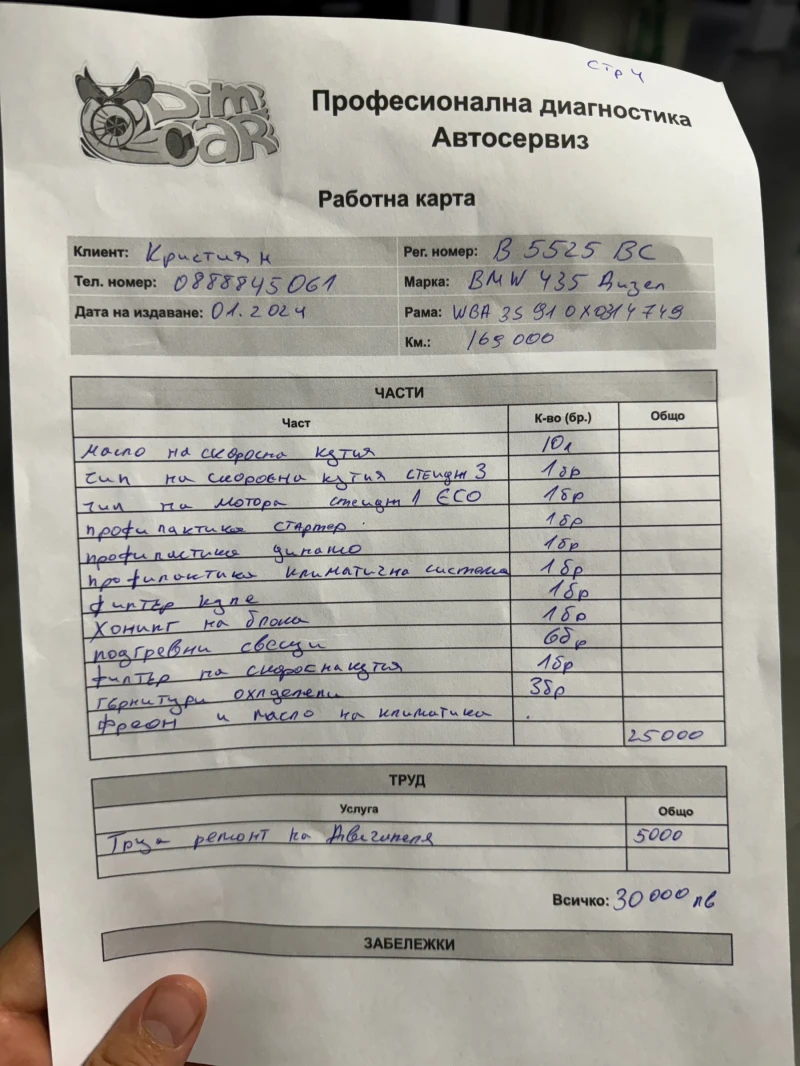 стр 4
Dim CAR
Професионална диагностика
Автосервиз
Работна карта
Клиент: Кристиян
Рег. номер: В 5525 ВС
Тел. номер: 0888845061
Марка: BMW 435 Дизел
Дата на издаване: 01.2024
Рама: WBA 3S 910X0314749
Км.: 169 000
ЧАСТИ
Част К-во (бр.) Общо
масло на скоросна кутия 10л
чип на скоросна кутия стейдж 3 1бр
чип на мотора стейдж 1 ECO 1бр
профилактика стартер 1бр
профилактика динамо 1бр
профилактика климатична система 1бр
филтър купе 1бр
Хонинг на блока 1бр
подгревни свещи 6бр
филтър на скоросна кутия 1бр
гарнитури охладели 3бр
фреон и масло на климатика
25000
ТРУД
Услуга Общо
Труд ремонт на двигателя 5000
Всичко: 30 000 лв
ЗАБЕЛЕЖКИ